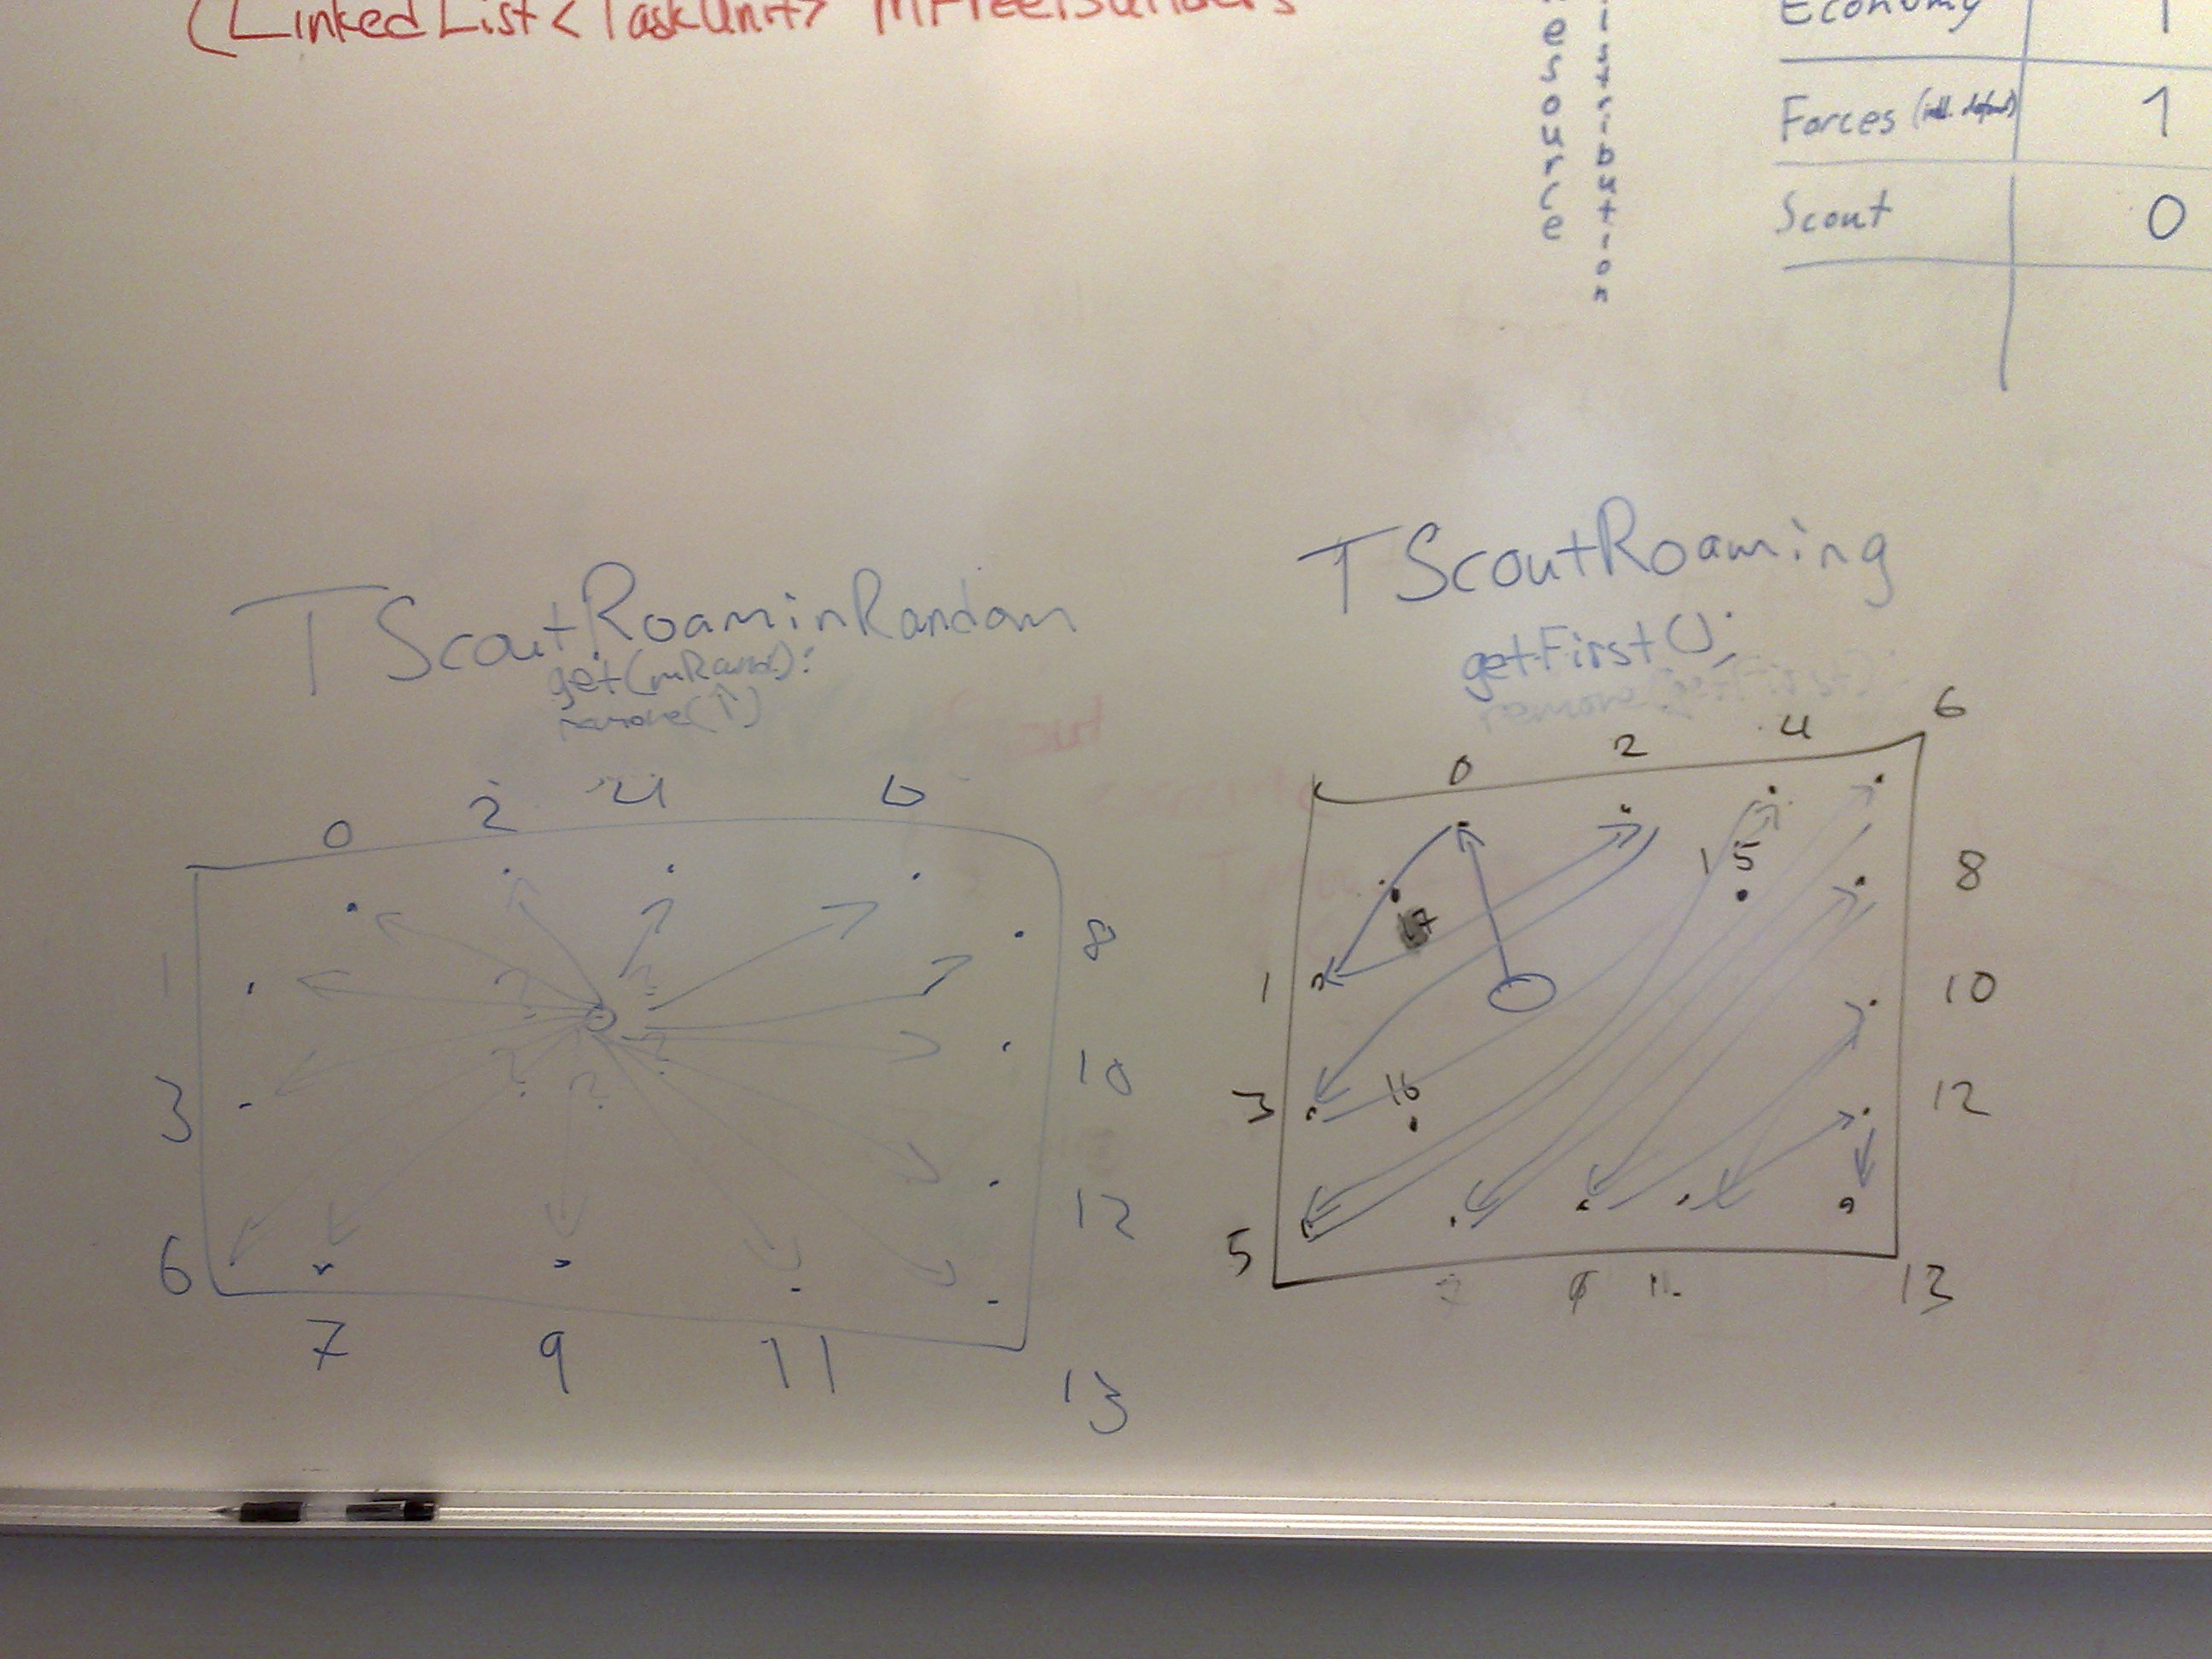 (LinkedList<TaskUnit> mFreeBuilders
esource
istribution
Economy 1
Forces (inkl. defend) 1
Scout 0
TScoutRoaminRandom
get(mRand);
remove(↑)
0 2 4 6
1 8
3 10
12
6
7 9 11 13
TScoutRoaming
getFirst();
remove(getFirst);
0 2 4 6
15 8
17
1 10
3 16 12
5 13
7 9 11